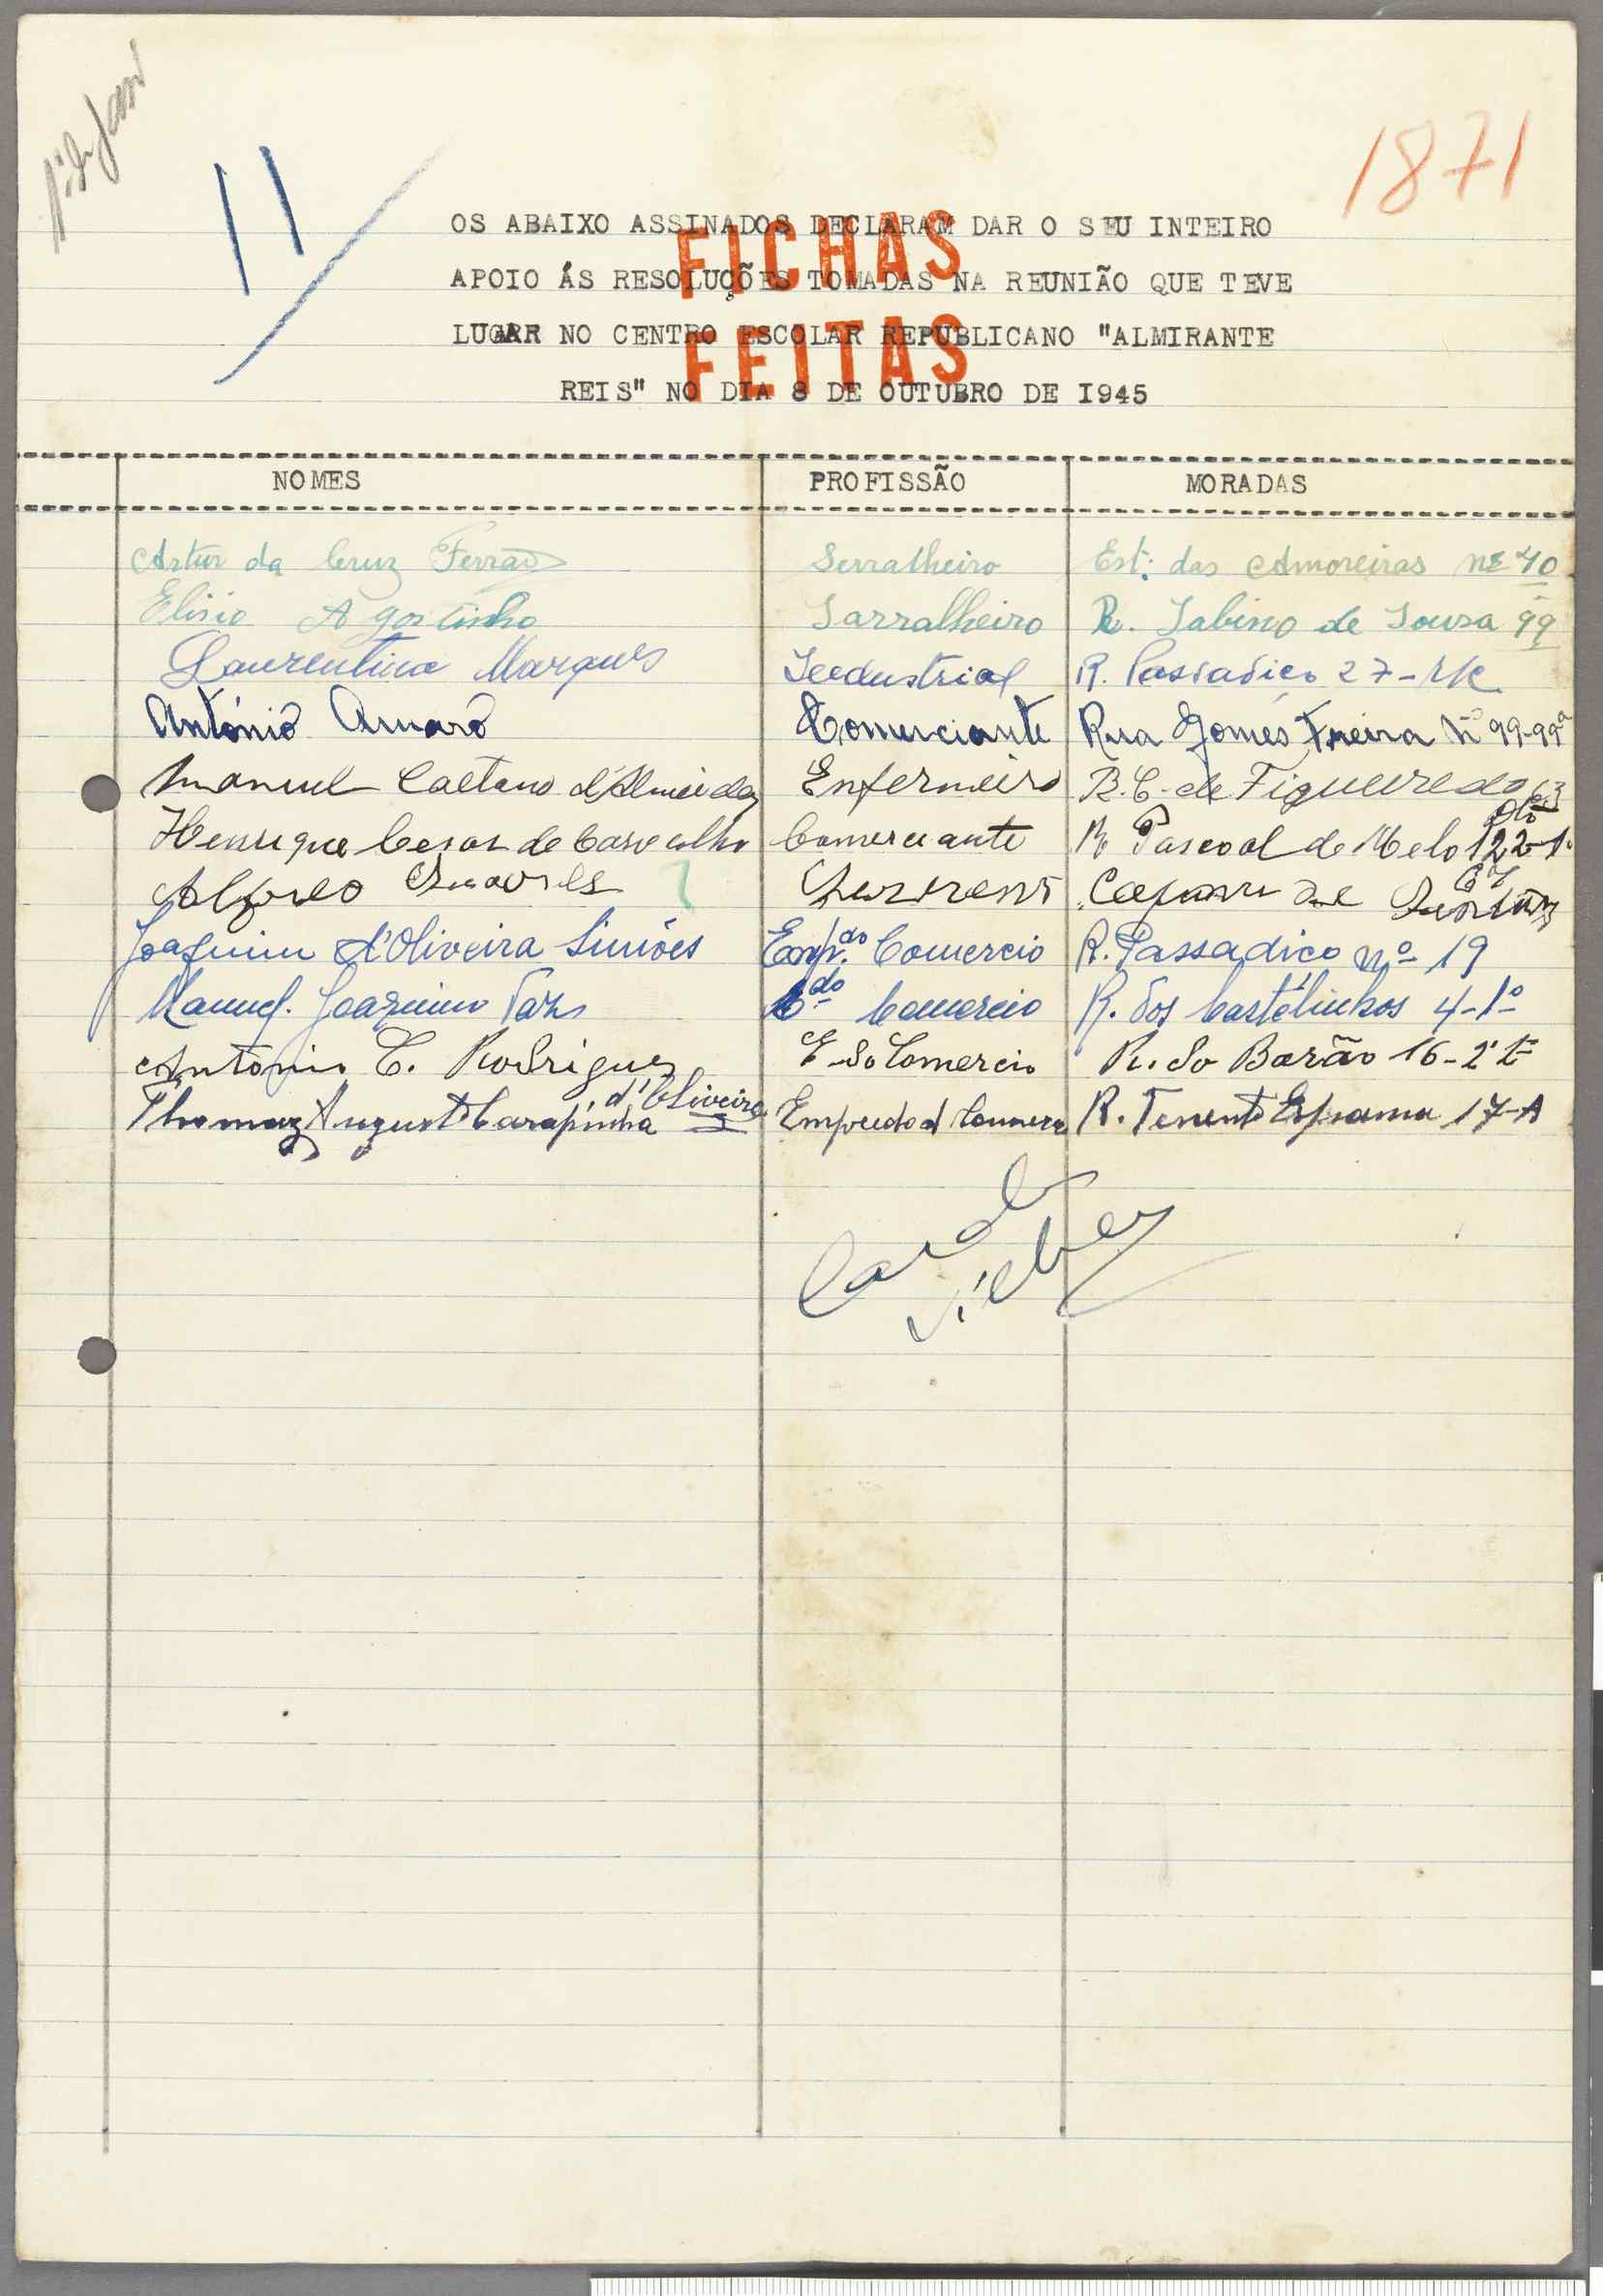 1871
11
OS ABAIXO ASSINADOS DECLARAM DAR O SEU INTEIRO
APOIO ÁS RESOLUÇÕES TOMADAS NA REUNIÃO QUE TEVE
LUGAR NO CENTRO ESCOLAR REPUBLICANO "ALMIRANTE
REIS" NO DIA 8 DE OUTUBRO DE I945
FICHAS
FEITAS
NOMES PROFISSÃO MORADAS
Artur da Cruz Ferrão Serralheiro Est: das Amoreiras nº 40
Elisio Agostinho Sarralheiro R. Sabino de Sousa 99
Laurentino Marques Industrial R. Passadico 27-r/c
António Amaro Comerciante Rua Gomes Freire Nº 99-99ª
Manuel Caetano d'Almeida Enfermeiro R. C. de Figueiredo 63
Henrique Cesar de Carvalho Comerciante R Pascoal de Melo 122-1º
Alfredo de
Joaquim d'Oliveira Simões Empdo. Comercio R. Passadico nº 19
Manuel Joaquim Vaz Edo Comercio R. dos Castélinhos 4-1º
António C. Rodrigues E do Comercio R. do Barão 16-2º
Thomaz Augusto Carapinha d'Oliveira R. Tenente 17-A